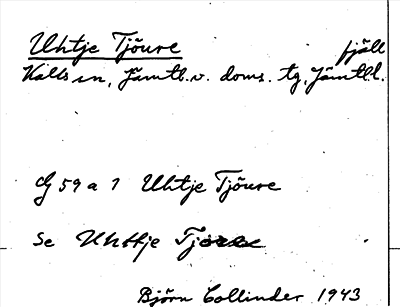 Uhtje Tjōure fjäll
Kalls sn, Jämtl. v. doms. tg, Jämtl. l.
59 a 1 Uhtje Tjōure
Se Uhttje
Björn Collinder 1943